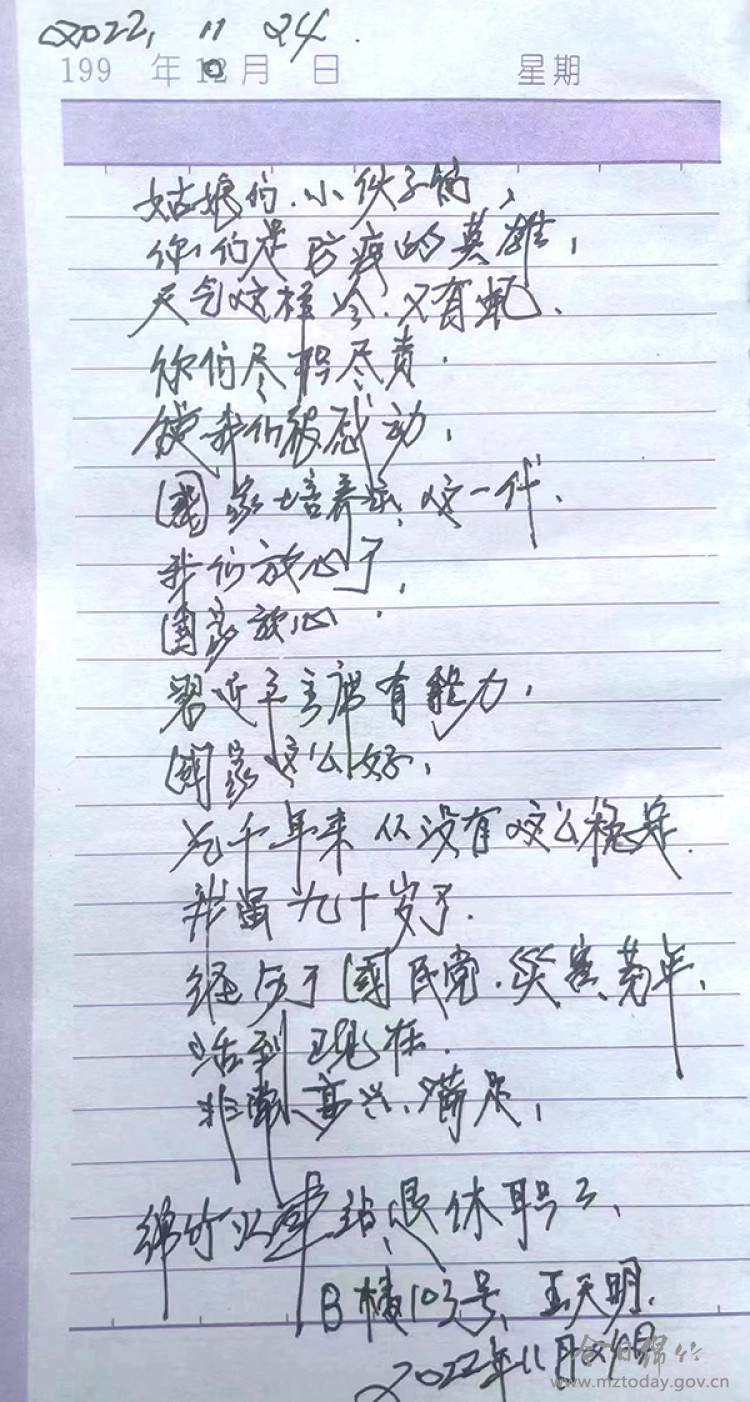 2022. 11 24.
199 年12月 日 星期
姑娘们、小伙子们，
你们是防疫的英雄，
天气这样冷、又有蚊、
你们尽职尽责.
使我们被感动，
國家培养出这一代、
我们放心了，
國家放心.
习近平主席有能力，
國家这么好，
几千年来从没有这么稳定.
我虽九十岁了.
经历了國民党、灾害、荒年、
活到现在.
非常高兴、满足，
绵竹火车站退休职工、
B楼103号、王天明.
2022年11月24日
今日绵竹
www.mztoday.gov.cn